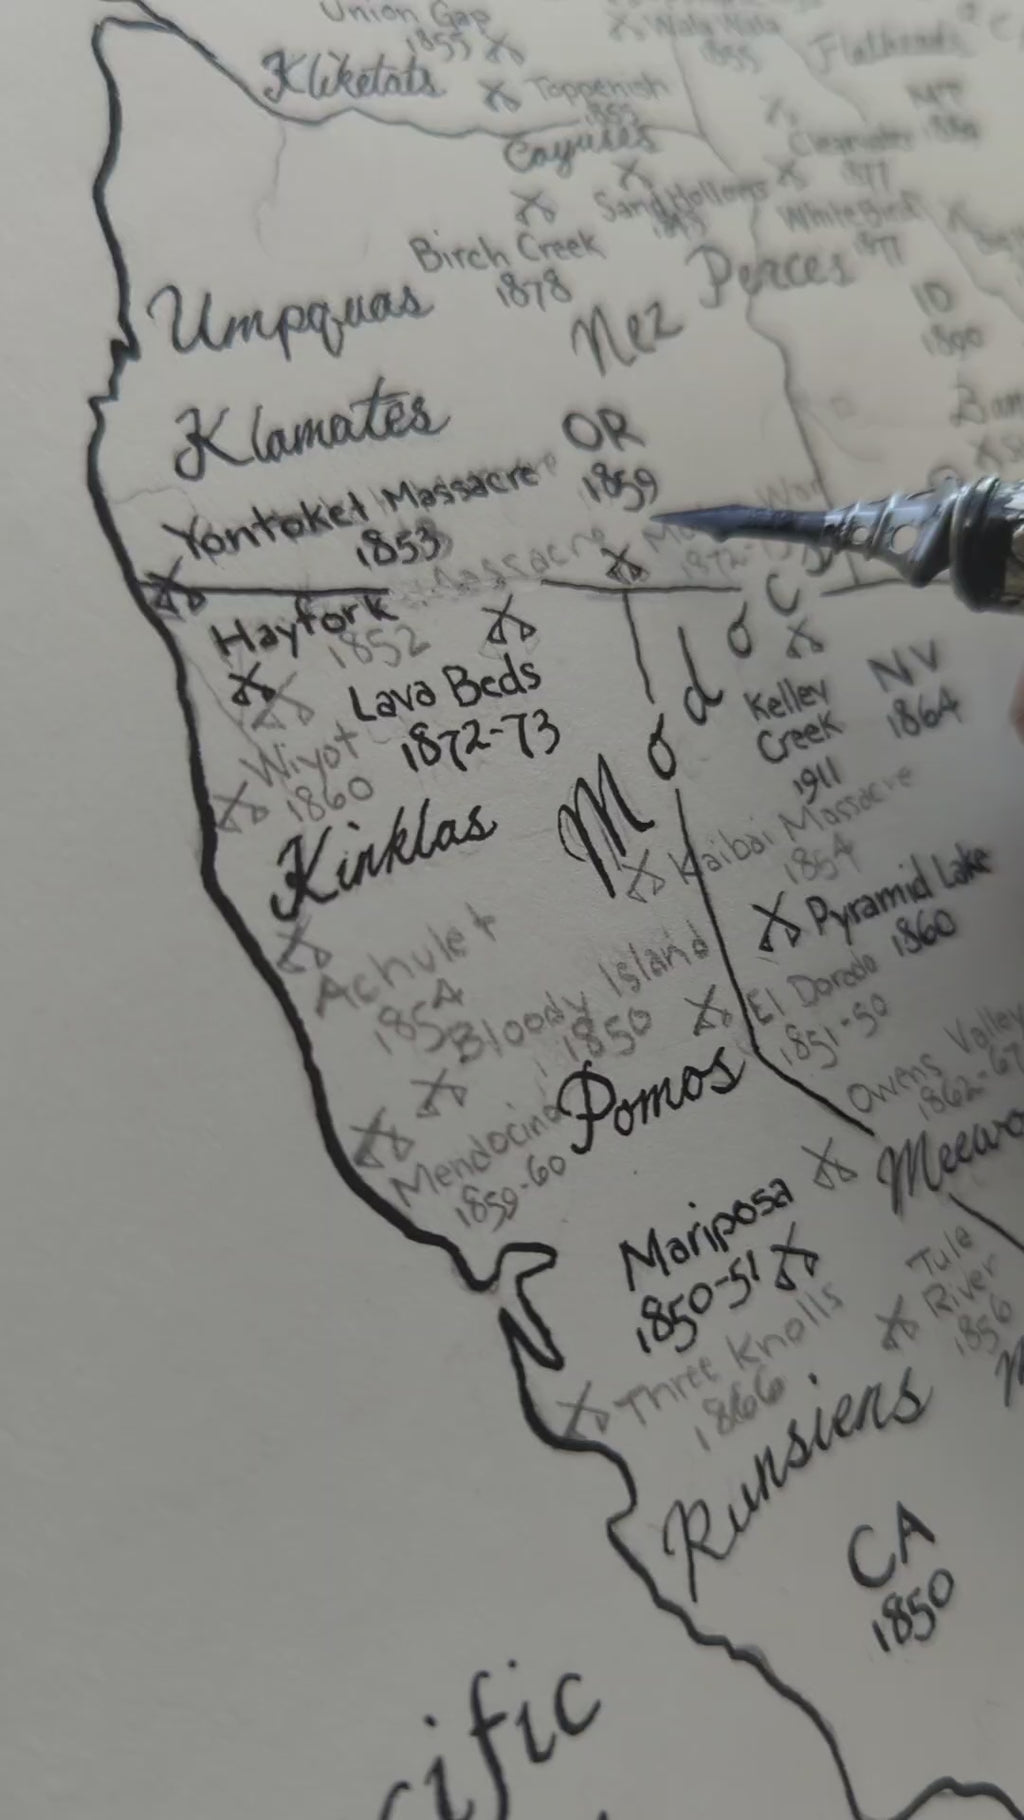 Union Gap
1855
Walla Walla
1855
Flatheads
Kliketats
Toppenish
1855
MT
1889
Cayuses
Clearwater
1877
Sand Hollow
White Bird
1877
Birch Creek
1878
Umpquas
Nez Perces
ID
1890
Klamates
OR
1859
Yontoket Massacre
1853
Massacre
War
1872-
Hayfork
1852
Modoc
Lava Beds
1872-73
Kelley
Creek
1911
NV
1864
Wiyot
1860
Kinklas
Kaibai Massacre
1854
Pyramid Lake
1860
Achulet
1854
Bloody Island
1850
El Dorado
1851-50
Owens Valley
1862-67
Pomos
Mendocino
1859-60
Mariposa
1850-51
Tule
River
1856
Three Knolls
1866
Runsiens
CA
1850
ific